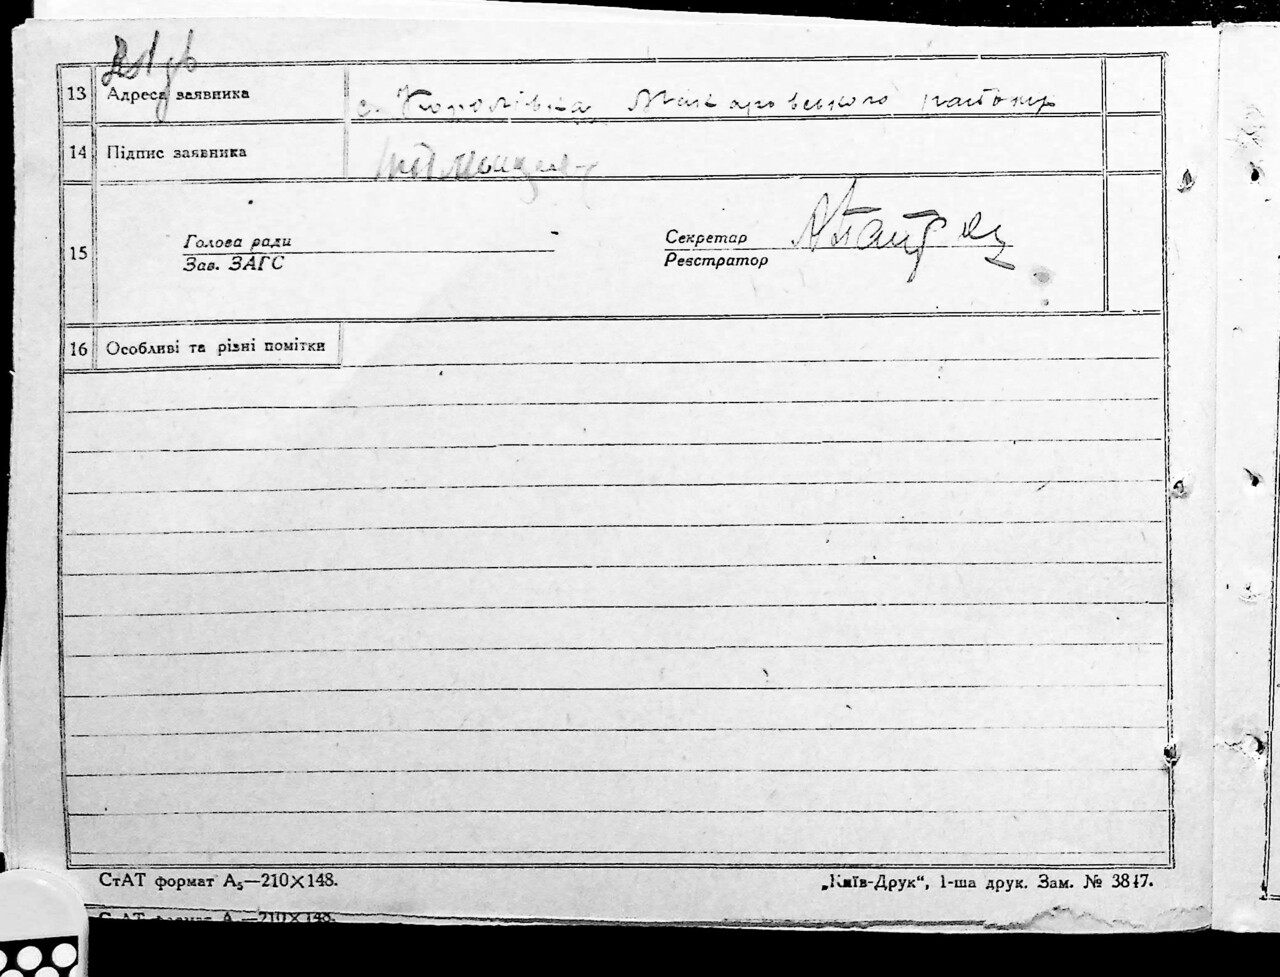 13 Адреса заявника с. Королівка Макаровського району
14 Підпис заявника
15
Голова ради
Зав. ЗАГС
Секретар
Реєстратор
16 Особливі та різні помітки
СтАТ формат А₅—210×148.
„Київ-Друк“, 1-ша друк. Зам. № 3847.
СтАТ формат А₅—210×148.